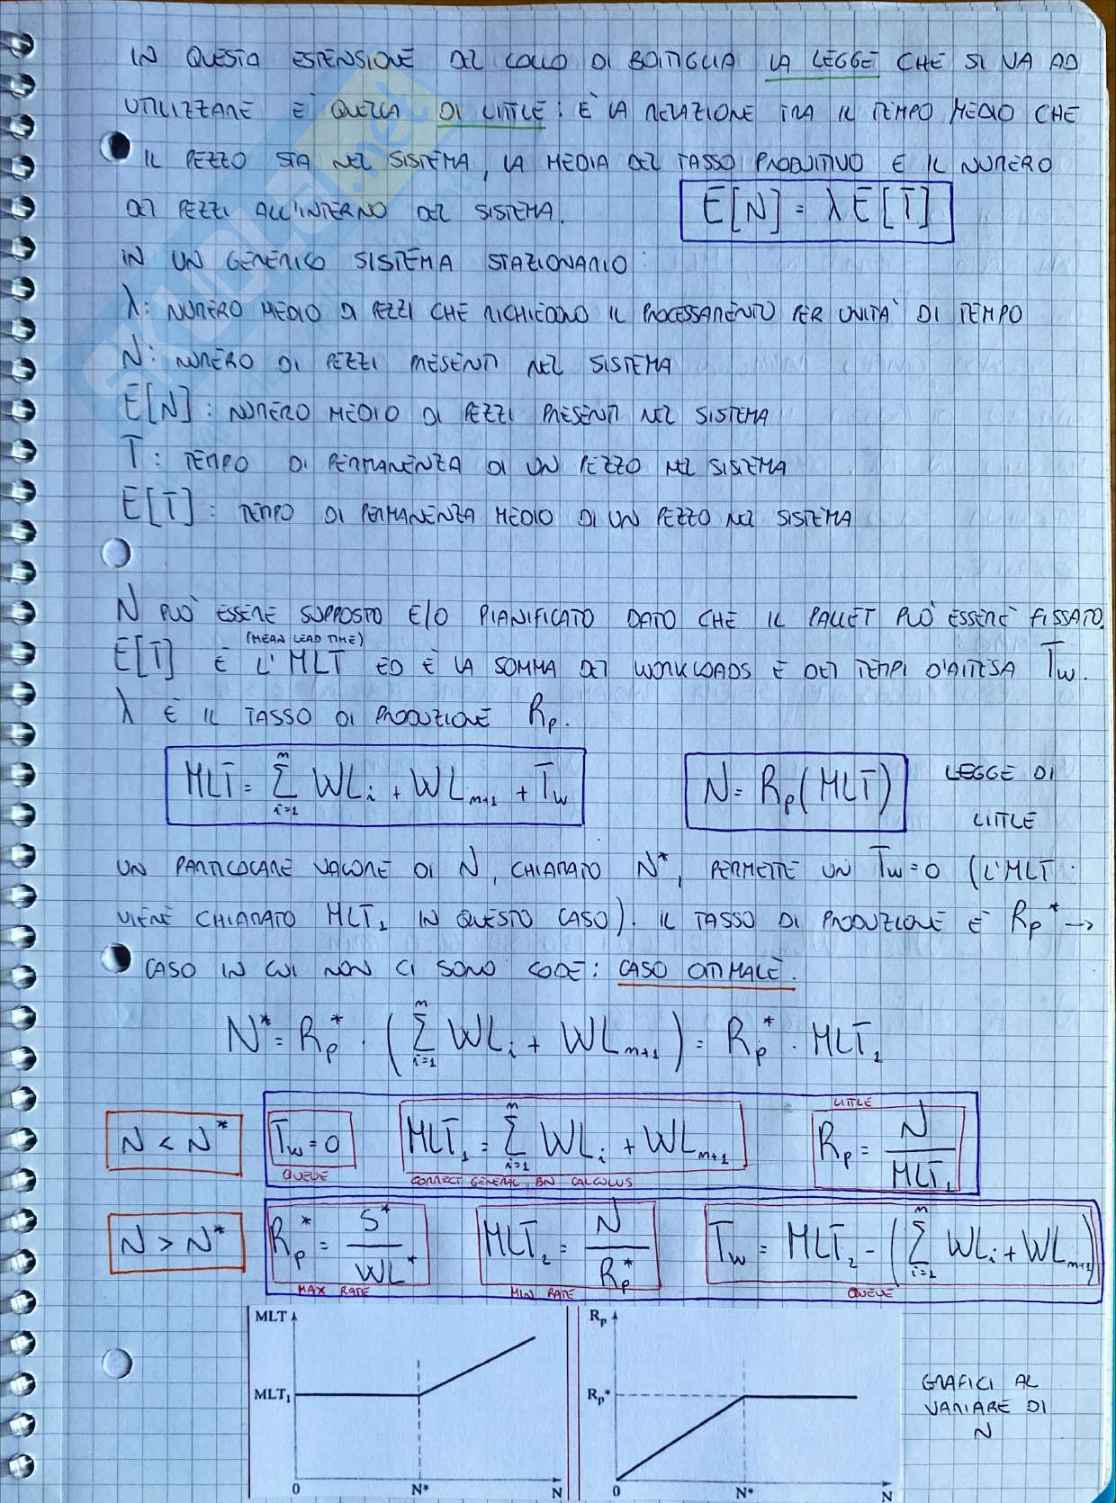 IN QUESTA ESTENSIONE DEL COLLO DI BOTTIGLIA LA LEGGE CHE SI VA AD
UTILIZZARE È QUELLA DI LITTLE: È LA RELAZIONE TRA IL TEMPO MEDIO CHE
IL PEZZO STA NEL SISTEMA, LA MEDIA DEL TASSO PRODUTTIVO E IL NUMERO
DEI PEZZI ALL'INTERNO DEL SISTEMA. E[N] = λ E[T]
IN UN GENERICO SISTEMA STAZIONARIO:
λ: NUMERO MEDIO DI PEZZI CHE RICHIEDONO IL PROCESSAMENTO PER UNITÀ DI TEMPO
N: NUMERO DI PEZZI PRESENTI NEL SISTEMA
E[N]: NUMERO MEDIO DI PEZZI PRESENTI NEL SISTEMA
T: TEMPO DI PERMANENZA DI UN PEZZO NEL SISTEMA
E[T]: TEMPO DI PERMANENZA MEDIO DI UN PEZZO NEL SISTEMA
N PUÒ ESSERE SUPPOSTO E/O PIANIFICATO DATO CHE IL PALLET PUÒ ESSERE FISSATO.
(MEAN LEAD TIME)
E[T] È L'MLT ED È LA SOMMA DEI WORKLOADS E DEI TEMPI D'ATTESA Tw.
λ È IL TASSO DI PRODUZIONE Rp.
MLT = Σ_{i=1}^{m} WL_i + WL_{m+1} + Tw N = Rp(MLT) LEGGE DI
LITTLE
UN PARTICOLARE VALORE DI N, CHIAMATO N*, PERMETTE UN Tw=0 (L'MLT
VIENE CHIAMATO MLT₁ IN QUESTO CASO). IL TASSO DI PRODUZIONE È Rp* →
CASO IN CUI NON CI SONO CODE: CASO OTTIMALE.
N* = Rp* · (Σ_{i=1}^{m} WL_i + WL_{m+1}) = Rp* · MLT₁
LITTLE
N < N* Tw = 0 MLT₁ = Σ_{i=1}^{m} WL_i + WL_{m+1} Rp = N / MLT₁
QUEUE CORRECT GENERAL BN CALCULUS
N > N* Rp* = S* / WL* MLT₂ = N / Rp* Tw = MLT₂ - (Σ_{i=1}^{m} WL_i + WL_{m+1})
MAX RATE MIN RATE QUEUE
MLT Rp
MLT₁ Rp*
GRAFICI AL
VARIARE DI
N
0 N* N 0 N* N